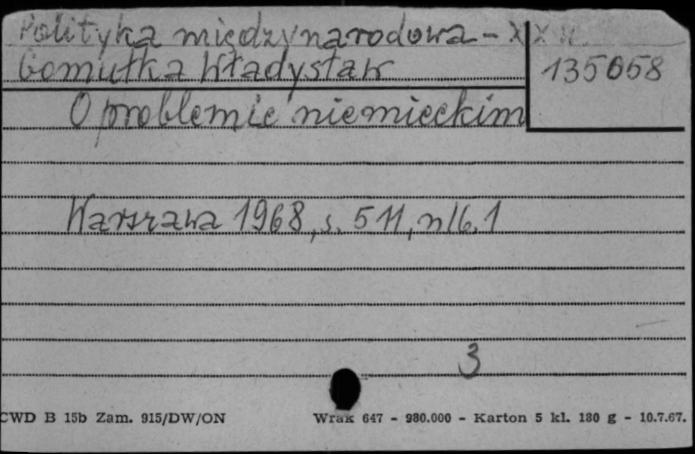 Polityka międzynarodowa - XX w.
Gomułka Władysław
135658
O problemie niemieckim
Warszawa 1968, s. 511, nlb. 1
3
CWD B 15b Zam. 915/DW/ON
Wrak 647 - 980.000 - Karton 5 kl. 180 g - 10.7.67.